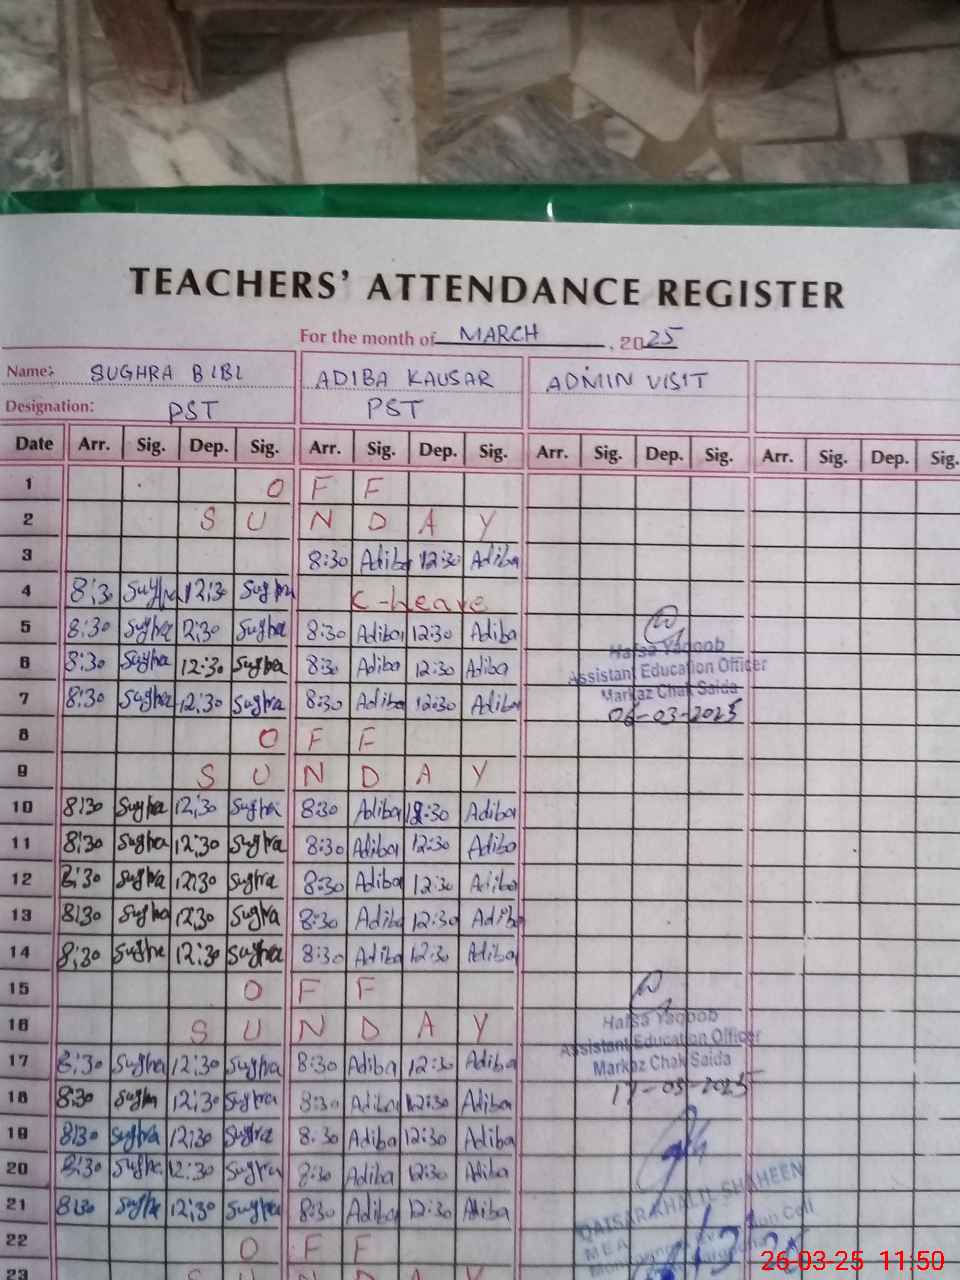 TEACHERS' ATTENDANCE REGISTER
For the month of MARCH, 2025
Name: SUGHRA BIBI ADIBA KAUSAR ADMIN VISIT
Designation: PST PST
Date Arr. Sig. Dep. Sig. Arr. Sig. Dep. Sig. Arr. Sig. Dep. Sig. Arr. Sig. Dep. Sig.
1 O F F
2 S U N D A Y
3 8:30 Adiba 12:30 Adiba
4 8:30 Sughra 12:30 Sughra C-Leave
5 8:30 Sughra 12:30 Sughra 8:30 Adiba 12:30 Adiba
6 8:30 Sughra 12:30 Sughra 8:30 Adiba 12:30 Adiba
7 8:30 Sughra 12:30 Sughra 8:30 Adiba 12:30 Adiba
Hafsa Yaqoob
Assistant Education Officer
Markaz Chak Saida
06-03-2025
8 O F F
9 S U N D A Y
10 8:30 Sughra 12:30 Sughra 8:30 Adiba 12:30 Adiba
11 8:30 Sughra 12:30 Sughra 8:30 Adiba 12:30 Adiba
12 8:30 Sughra 12:30 Sughra 8:30 Adiba 12:30 Adiba
13 8:30 Sughra 12:30 Sughra 8:30 Adiba 12:30 Adiba
14 8:30 Sughra 12:30 Sughra 8:30 Adiba 12:30 Adiba
15 O F F
16 S U N D A Y
Hafsa Yaqoob
Assistant Education Officer
Markaz Chak Saida
17-03-2025
17 8:30 Sughra 12:30 Sughra 8:30 Adiba 12:30 Adiba
18 8:30 Sughra 12:30 Sughra 8:30 Adiba 12:30 Adiba
19 8:30 Sughra 12:30 Sughra 8:30 Adiba 12:30 Adiba
20 8:30 Sughra 12:30 Sughra 8:30 Adiba 12:30 Adiba
21 8:30 Sughra 12:30 Sughra 8:30 Adiba 12:30 Adiba
QAISAR KHALIL SHAHEEN
MEA
22 O F F
23 S U N D A Y
26-03-25 11:50